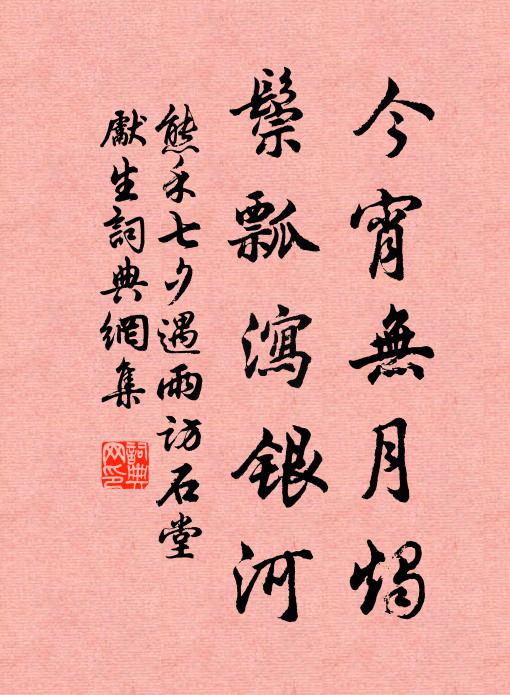 今宵無月燭
鬃瓢瀉銀河
熊禾七夕遇雨访石堂
獻生詞典網集
詞典網印